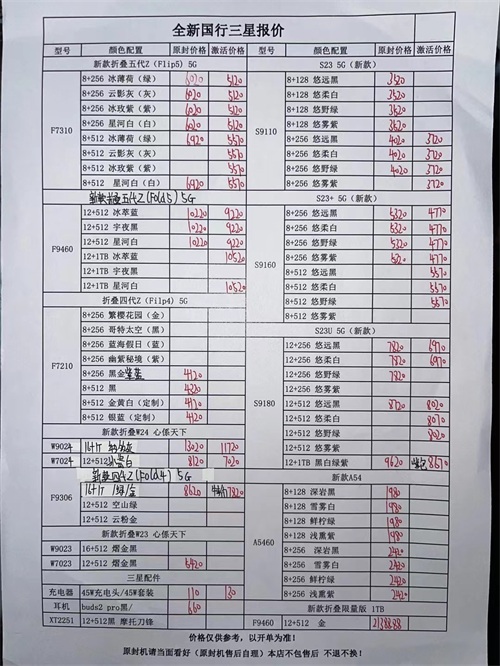 全新国行三星报价
型号 颜色配置 原封价格 激活价格
新款折叠五代Z (Flip5) 5G
F7310
8+256 冰薄荷（绿） 6020 5120
8+256 云影灰（灰） 6020 5120
8+256 冰玫紫（紫） 6020 5120
8+256 星河白（白） 6020 5120
8+512 冰薄荷（绿） 6920 5570
8+512 云影灰（灰） 5570
8+512 冰玫紫（紫） 5570
8+512 星河白（白） 6920 5570
新款折叠五代Z (Fold5) 5G
F9460
12+512 冰萃蓝 10220 9220
12+512 宇夜黑 10220 9220
12+512 星河白 10220 9220
12+1TB 冰萃蓝 10520
12+1TB 宇夜黑
12+1TB 星河白 10520
折叠四代Z (Filp4) 5G
F7210
8+256 繁樱花园（金）
8+256 哥特太空（黑）
8+256 蓝海假日（蓝）
8+256 幽紫秘境（紫）
8+256 黑金紫蓝 4120
8+512 黑 4220
8+512 金黄白（定制） 4170
8+512 银蓝（定制） 4120
新款折叠W24 心係天下
W9024 16+1T 13020 11720
W7024 12+512 白 8120 7020
新款四代Z (Fold4) 5G
F9306
16+1T 绿/金 8620 7820
12+512 空山绿
12+512 云粉金
新款折叠W23 心係天下
W9023 16+512 熠金黑
W7023 12+512 熠金黑 5420
三星配件
充电器 45W充电头/45W套装 110 130
耳机 buds2 pro黑/ 660
XT2251 12+512黑 摩托刀锋
型号 颜色配置 原封价格 激活价格
S23 5G（新款）
S9110
8+128 悠远黑 3520
8+128 悠柔白 3520
8+128 悠野绿 3520
8+128 悠雾紫 3520
8+256 悠远黑 4020 3720
8+256 悠柔白 4020 3720
8+256 悠野绿 4020 3720
8+256 悠雾紫 3720
S23+ 5G（新款）
S9160
8+256 悠远黑 5320 4770
8+256 悠柔白 5320 4770
8+256 悠野绿 5320 4770
8+256 悠雾紫 5320 4770
8+512 悠远黑 5570
8+512 悠柔白 5570
8+512 悠野绿 5570
8+512 悠雾紫
S23U 5G（新款）
S9180
12+256 悠远黑 7820 6970
12+256 悠柔白 7820 6970
12+256 悠野绿 7820
12+256 悠雾紫
12+512 悠远黑 8720 8020
12+512 悠柔白 8070
12+512 悠野绿 8020
12+512 悠雾紫
12+1TB 黑白绿紫 9620 8670
新款A54
A5460
8+128 深岩黑 1980
8+128 雪雾白 1980
8+128 鲜柠绿 1980
8+128 浅熏紫 1980
8+256 深岩黑 2420
8+256 雪雾白 2420
8+256 鲜柠绿 2420
8+256 浅熏紫 2420
新款折叠限量版 1TB
F9460 12+512 金 213888
价格仅供参考，以开单为准!
原封机请当面看好（原封机售后自理）本店不包售后 不退不换!